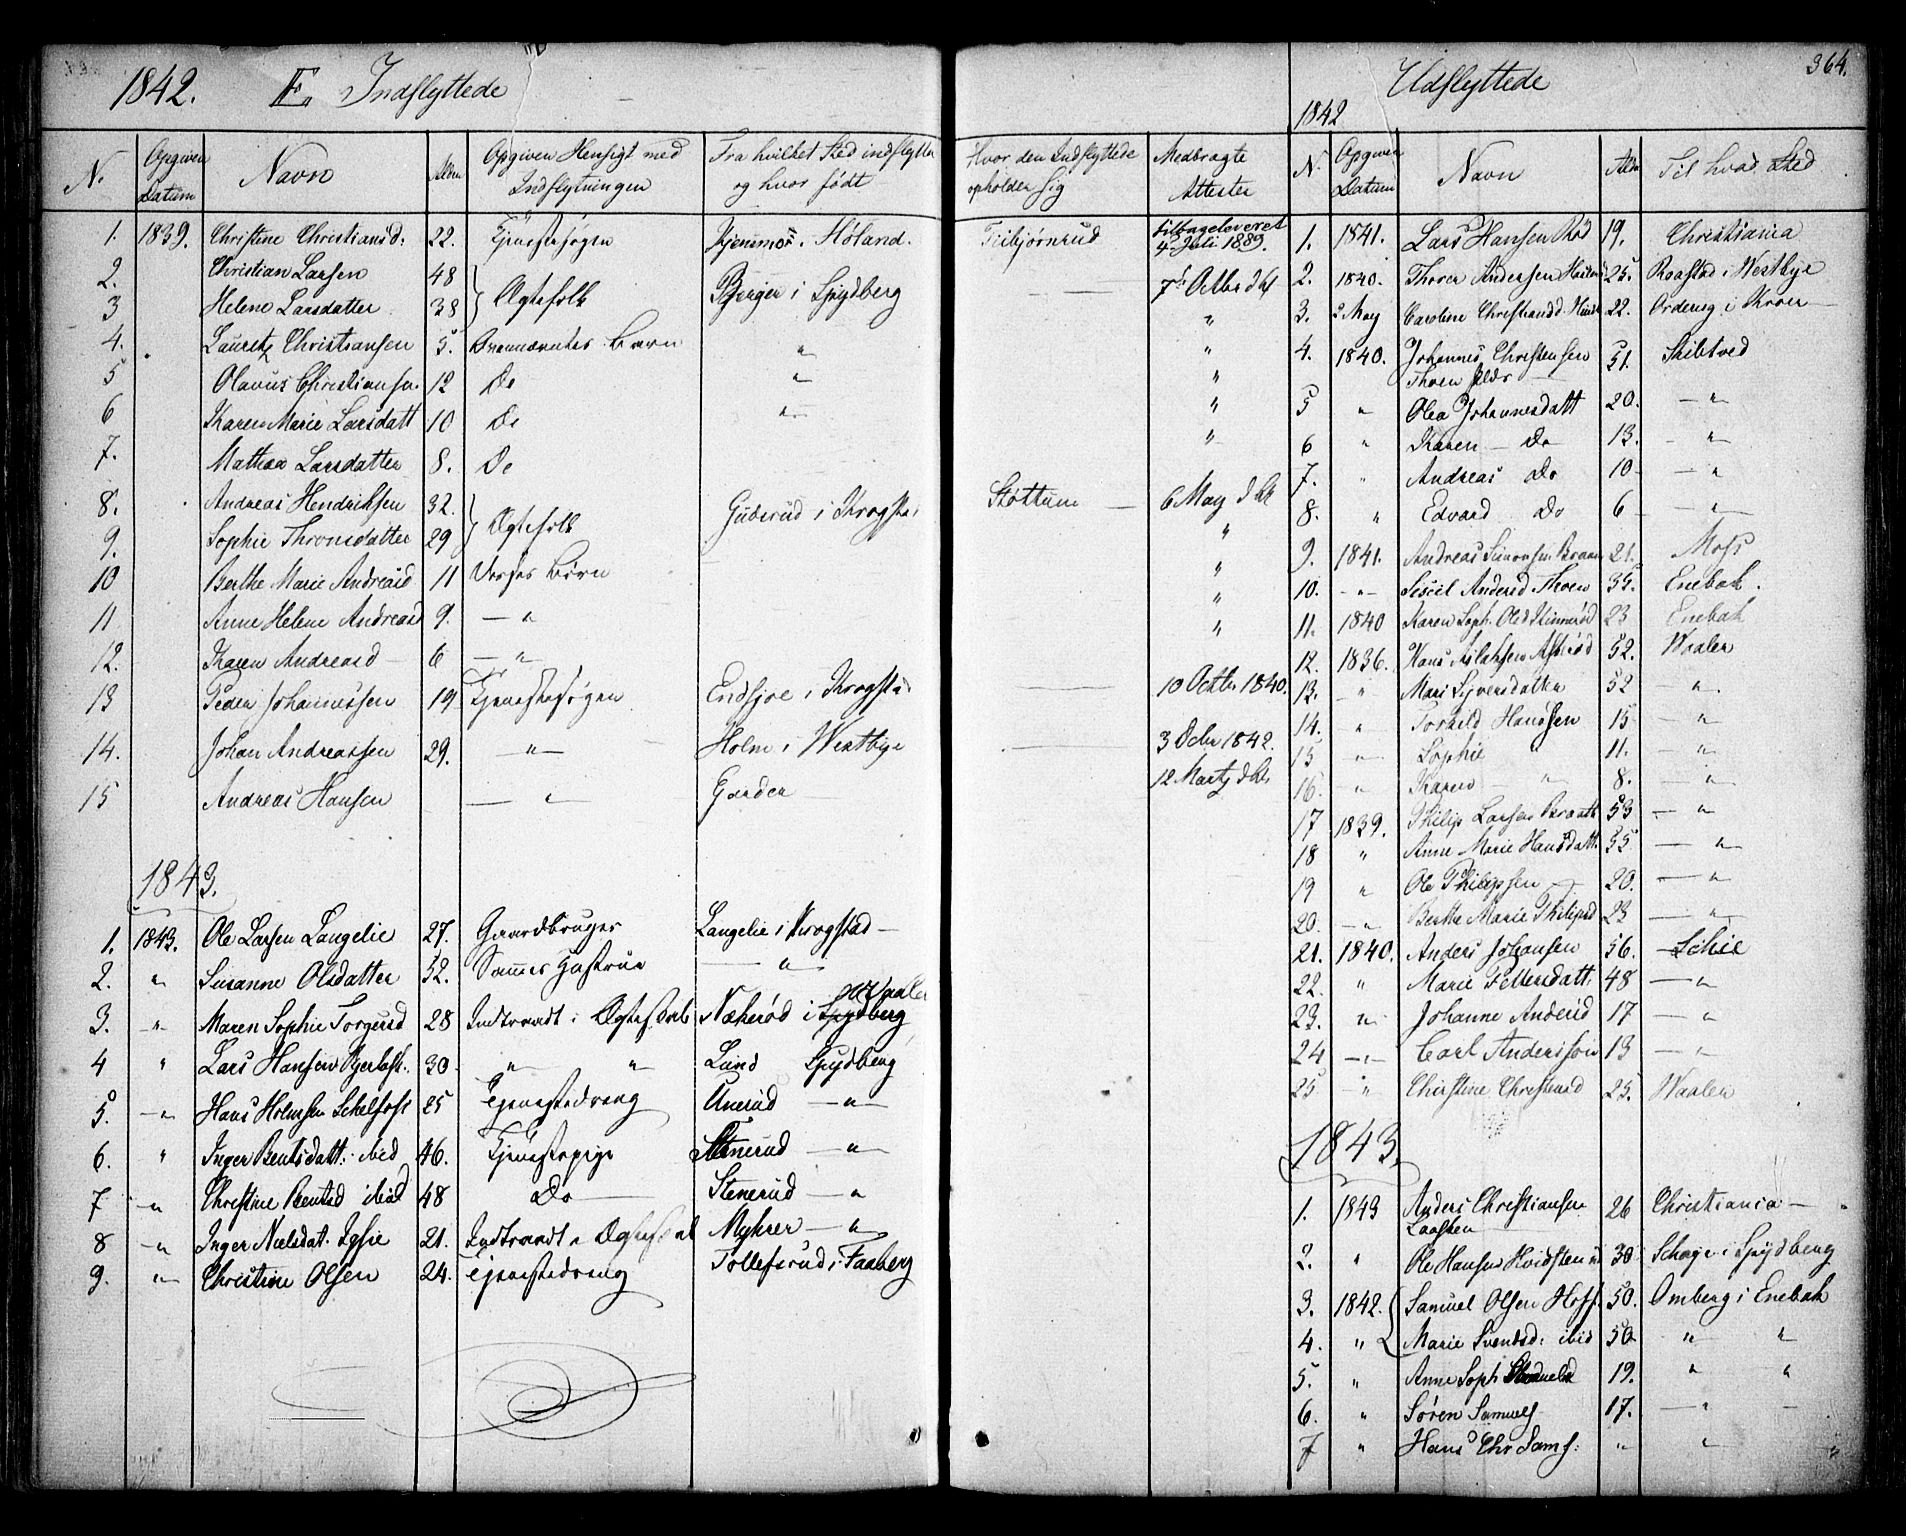 1842. E. Indflyttede
N. Opgiven Datum Navn Alder Opgiven Hensigt med Indflytningen Fra hvilket Sted indflytter og hvor født Hvor den Indflyttede opholder sig Medbragte Attester
1. 1839. Christine Christiansd: 22. Tjenestesøgen Høland. Tiibjørnrud tilbageleveret 4 Juli 1889.
2. Christian Larsen 48 Ægtefolk Berger i Spydberg 7de Octbr
3 Helene Larsdatter 38 "
4. Lauretz Christiansen 5. Børn " "
5 Olavus Christiansen 12 Do " "
6 Karen Marie Larsdatt 10 Do " "
7. Mathea Larsdatter 8. Do "
8. Andreas Hendriksen 32. Ægtefolk Guderud i Krogsta Støttum 6 May
9. Sophie Thronsdatter 29 "
10 Berthe Marie Andreasd 11 Deres Børn "
11 Anne Helene Andreasd 9. — " "
12. Karen Andreasd 6 — " — "
13 Peder Johannessen 19 Tjenestesøgen i Krogstad 10 Octbr 1840.
14. Johan Andreassen 29. — " — Holm i Westbye 3 Octbr 1842.
15 Andreas Hansen — " — Garder 12 Marts
1843.
1. 1843. Ole Larsen Langelie 27. Gaardbruger Langelie i Krogstad —
2. " Susanne Olsdatter 52. Sammes Hustrue — " —
3. " Maren Sophie Torgersd 28 Indtraadt i Ægtestab Nækerød i Spydberg Vaaler
4 " Lars Hansen 30 " " Lund Spydberg
5. — " Hans Holmsen Schelfos 25 Tjenestedreng Unerud — " —
6. " Inger Bentsdatt: ibid 46. Tjenestepige Stenerud — " —
7 — " Christine Bentsd ibid 48 Do Stenerud — "
8 — " Inger Nielsdat. 21. Indtraadt i Ægtestab Myhrer — " —
9. " Christine Olsen 24. Tjenestedreng Tollefsrud i Faaberg
364.
Udflyttede
1842
N. Opgiven Datum Navn Alder Til hvad Sted
1. 1841. Lars Hansen Rød 19. Christiania
2. 1840. Thorer Andersen 25. Raastad i Westbye
3. 2 May Caroline Christiansd 22. Ordering i Kroer —
4. 1840. Johannes Christensen 51. Skibtved
Thoen
5 " Olea Johannesdatt 20. — " —
6 " Karen — Do 13. — "
7. " Andreas Do 10 — "
8. " Edvard Do 6 — " —
9. 1841. Andreas Simonsen Braaten 21. Moss
10. — " — Sissel Andersd Thoen 35. Enebak.
11. 1840 Karen Soph. Olsd 23 Enebak
12. 1836. Hans Aslaksen 52. Waaler
13. — " Mari Syversdatter 52 — "
14. " Torkild Hanssen 15 — "
15 " Sophie 11. — "
16. " Karen " 8. — "
17 1839. Philip Larsen Braaten 53 — "
18 " Anne Marie Hansdatt. 55 — "
19 " Ole Philipsen 20. — "
20. — " Berthe Marie Philipsd 23 — " —
21. 1840. Anders Johansen 56. Schie
22. " Marie Pettersdatt. 48 — "
23. " Johanne Andersd 17 — "
24 — " Carl Anderssøn 13 — "
25. — " Christine Christensd 25. Waaler
1843.
1. 1843 Anders Christiansen 26 Christiania —
Laasken
2. " Ole Hansen Hvidsten 30 i Spydberg
3. 1842. Samuel Olsen Hoff 50. Omberg i Enebak
4. " Marie Svendsd: ibid 50 " "
5. " Anne Soph 19. " "
6. " Søren Samuels 17. — " —
7 " Hans Chr Sams: " " "